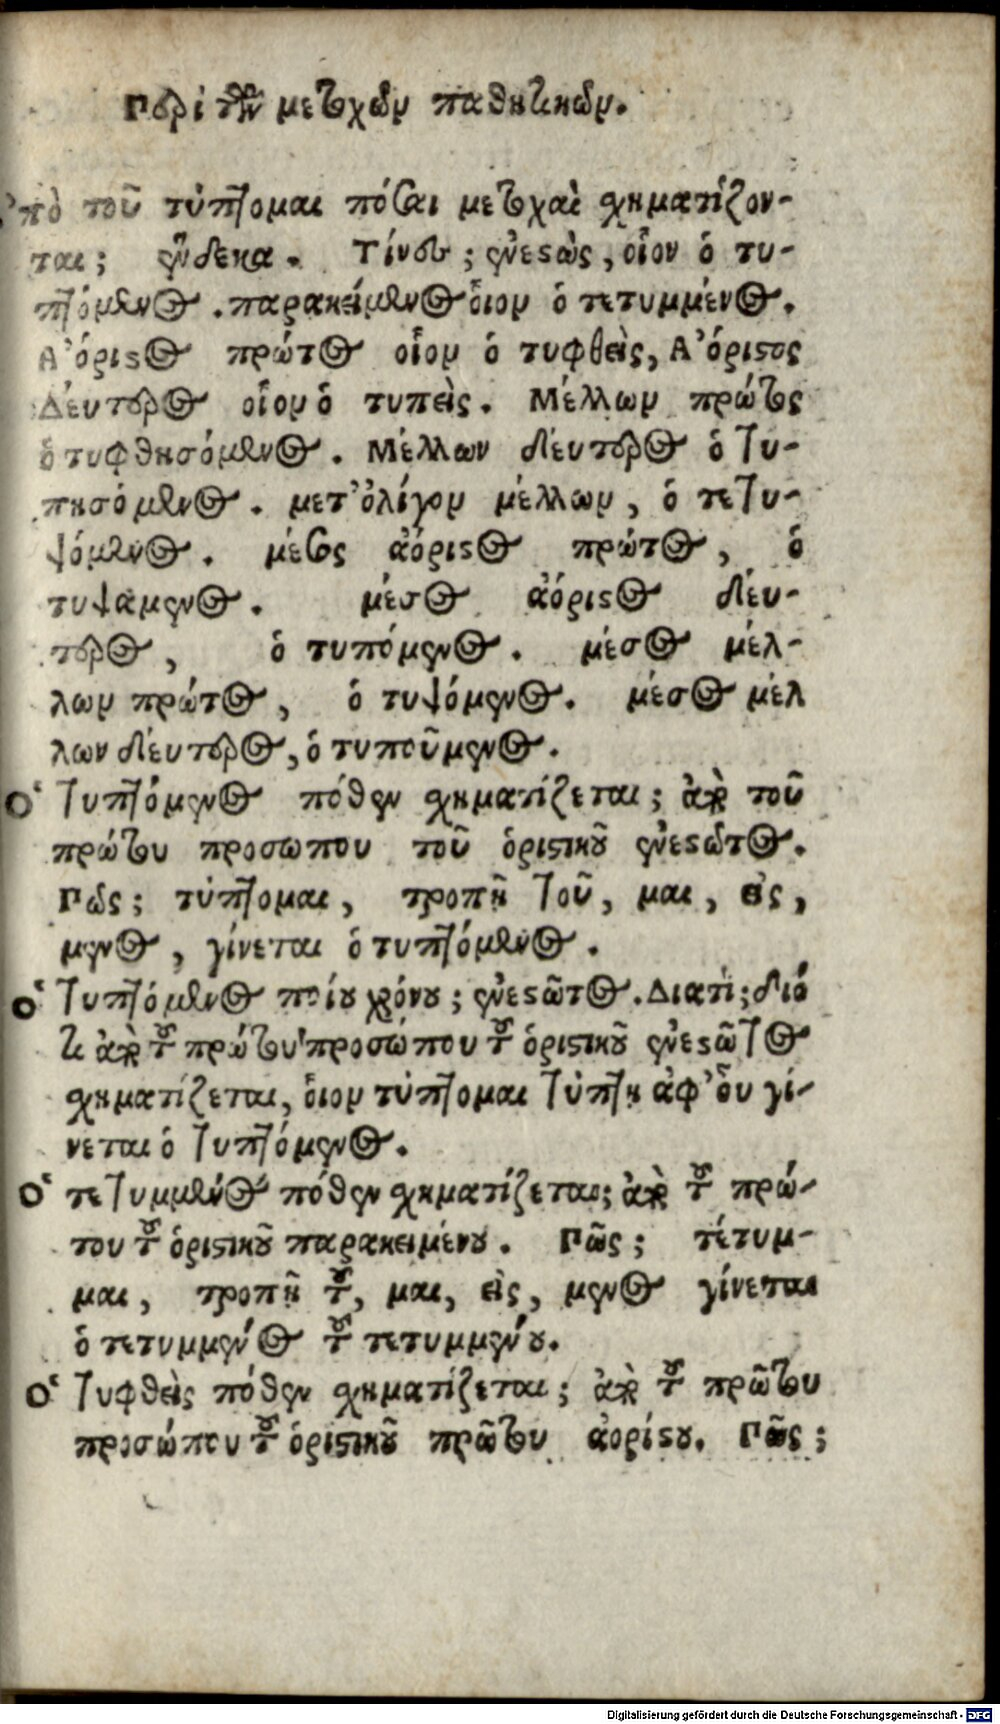 Περὶ τῶν μετοχῶν παθητικῶν.
Ἀπὸ τοῦ τύπτομαι πόσαι μετοχαὶ σχηματίζον-
ται; ἕνδεκα. Τίνες; ἐνεστὼς, οἷον ὁ τυ-
πτόμενος. παρακείμενος οἷον ὁ τετυμμένος.
Ἀόριστος πρώτος οἷον ὁ τυφθεὶς, Ἀόριστος
Δεύτερος οἷον ὁ τυπεὶς. Μέλλων πρώτος
ὁ τυφθησόμενος. Μέλλων δεύτερος ὁ τυ-
πησόμενος. μετ' ὀλίγον μέλλων, ὁ τετυ-
ψόμενος. μέσος ἀόριστος πρώτος, ὁ
τυψάμενος. μέσος ἀόριστος δεύ-
τερος, ὁ τυπόμενος. μέσος μέλ-
λων πρώτος, ὁ τυψόμενος. μέσος μέλ
λων δεύτερος, ὁ τυπούμενος.
Ὁ τυπτόμενος πόθεν σχηματίζεται; ἀπὸ τοῦ
πρώτου προσωπου τοῦ ὁριστικοῦ ἐνεστώτος.
Πώς; τύπτομαι, τροπῇ τοῦ, μαι, εἰς,
μενος, γίνεται ὁ τυπτόμενος.
Ὁ τυπτόμενος ποίου χρόνου; ἐνεστῶτος. Διατί; διό
τι ἀπὸ τοῦ πρώτου προσώπου τοῦ ὁριστικοῦ ἐνεστῶτος
σχηματίζεται, οἷον τύπτομαι τύπτῃ ἀφ' οὗ γί-
νεται ὁ τυπτόμενος.
Ὁ τετυμμένος πόθεν σχηματίζεται; ἀπὸ τοῦ πρώ-
του τοῦ ὁριστικοῦ παρακειμένου. Πῶς; τέτυμ-
μαι, τροπῇ τοῦ, μαι, εἰς, μενος γίνεται
ὁ τετυμμένος τοῦ τετυμμένου.
Ὁ τυφθεὶς πόθεν σχηματίζεται; ἀπὸ τοῦ πρῶτου
προσώπου τοῦ ὁριστικοῦ πρῶτου ἀορίστου. Πῶς;
Digitalisierung gefördert durch die Deutsche Forschungsgemeinschaft - DFG